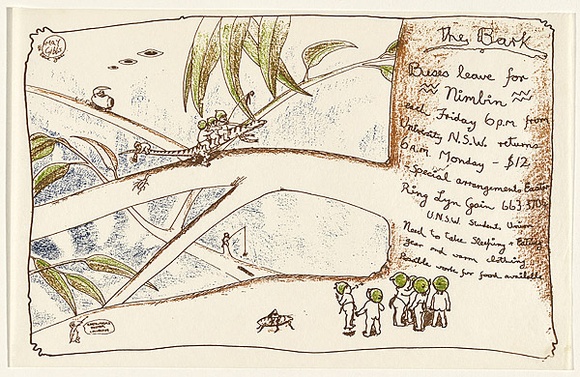 MAY
GIBB
The Bark
Buses leave for
Nimbin
each Friday 6 p.m from
University N.S.W. returns
6 a.m Monday - $12,
Special arrangements Easter
Ring Lyn Gain 663.
U.N.S.W. Students Union
Need to take Sleeping + Eating
gear and warm clothing
Possible work for food available